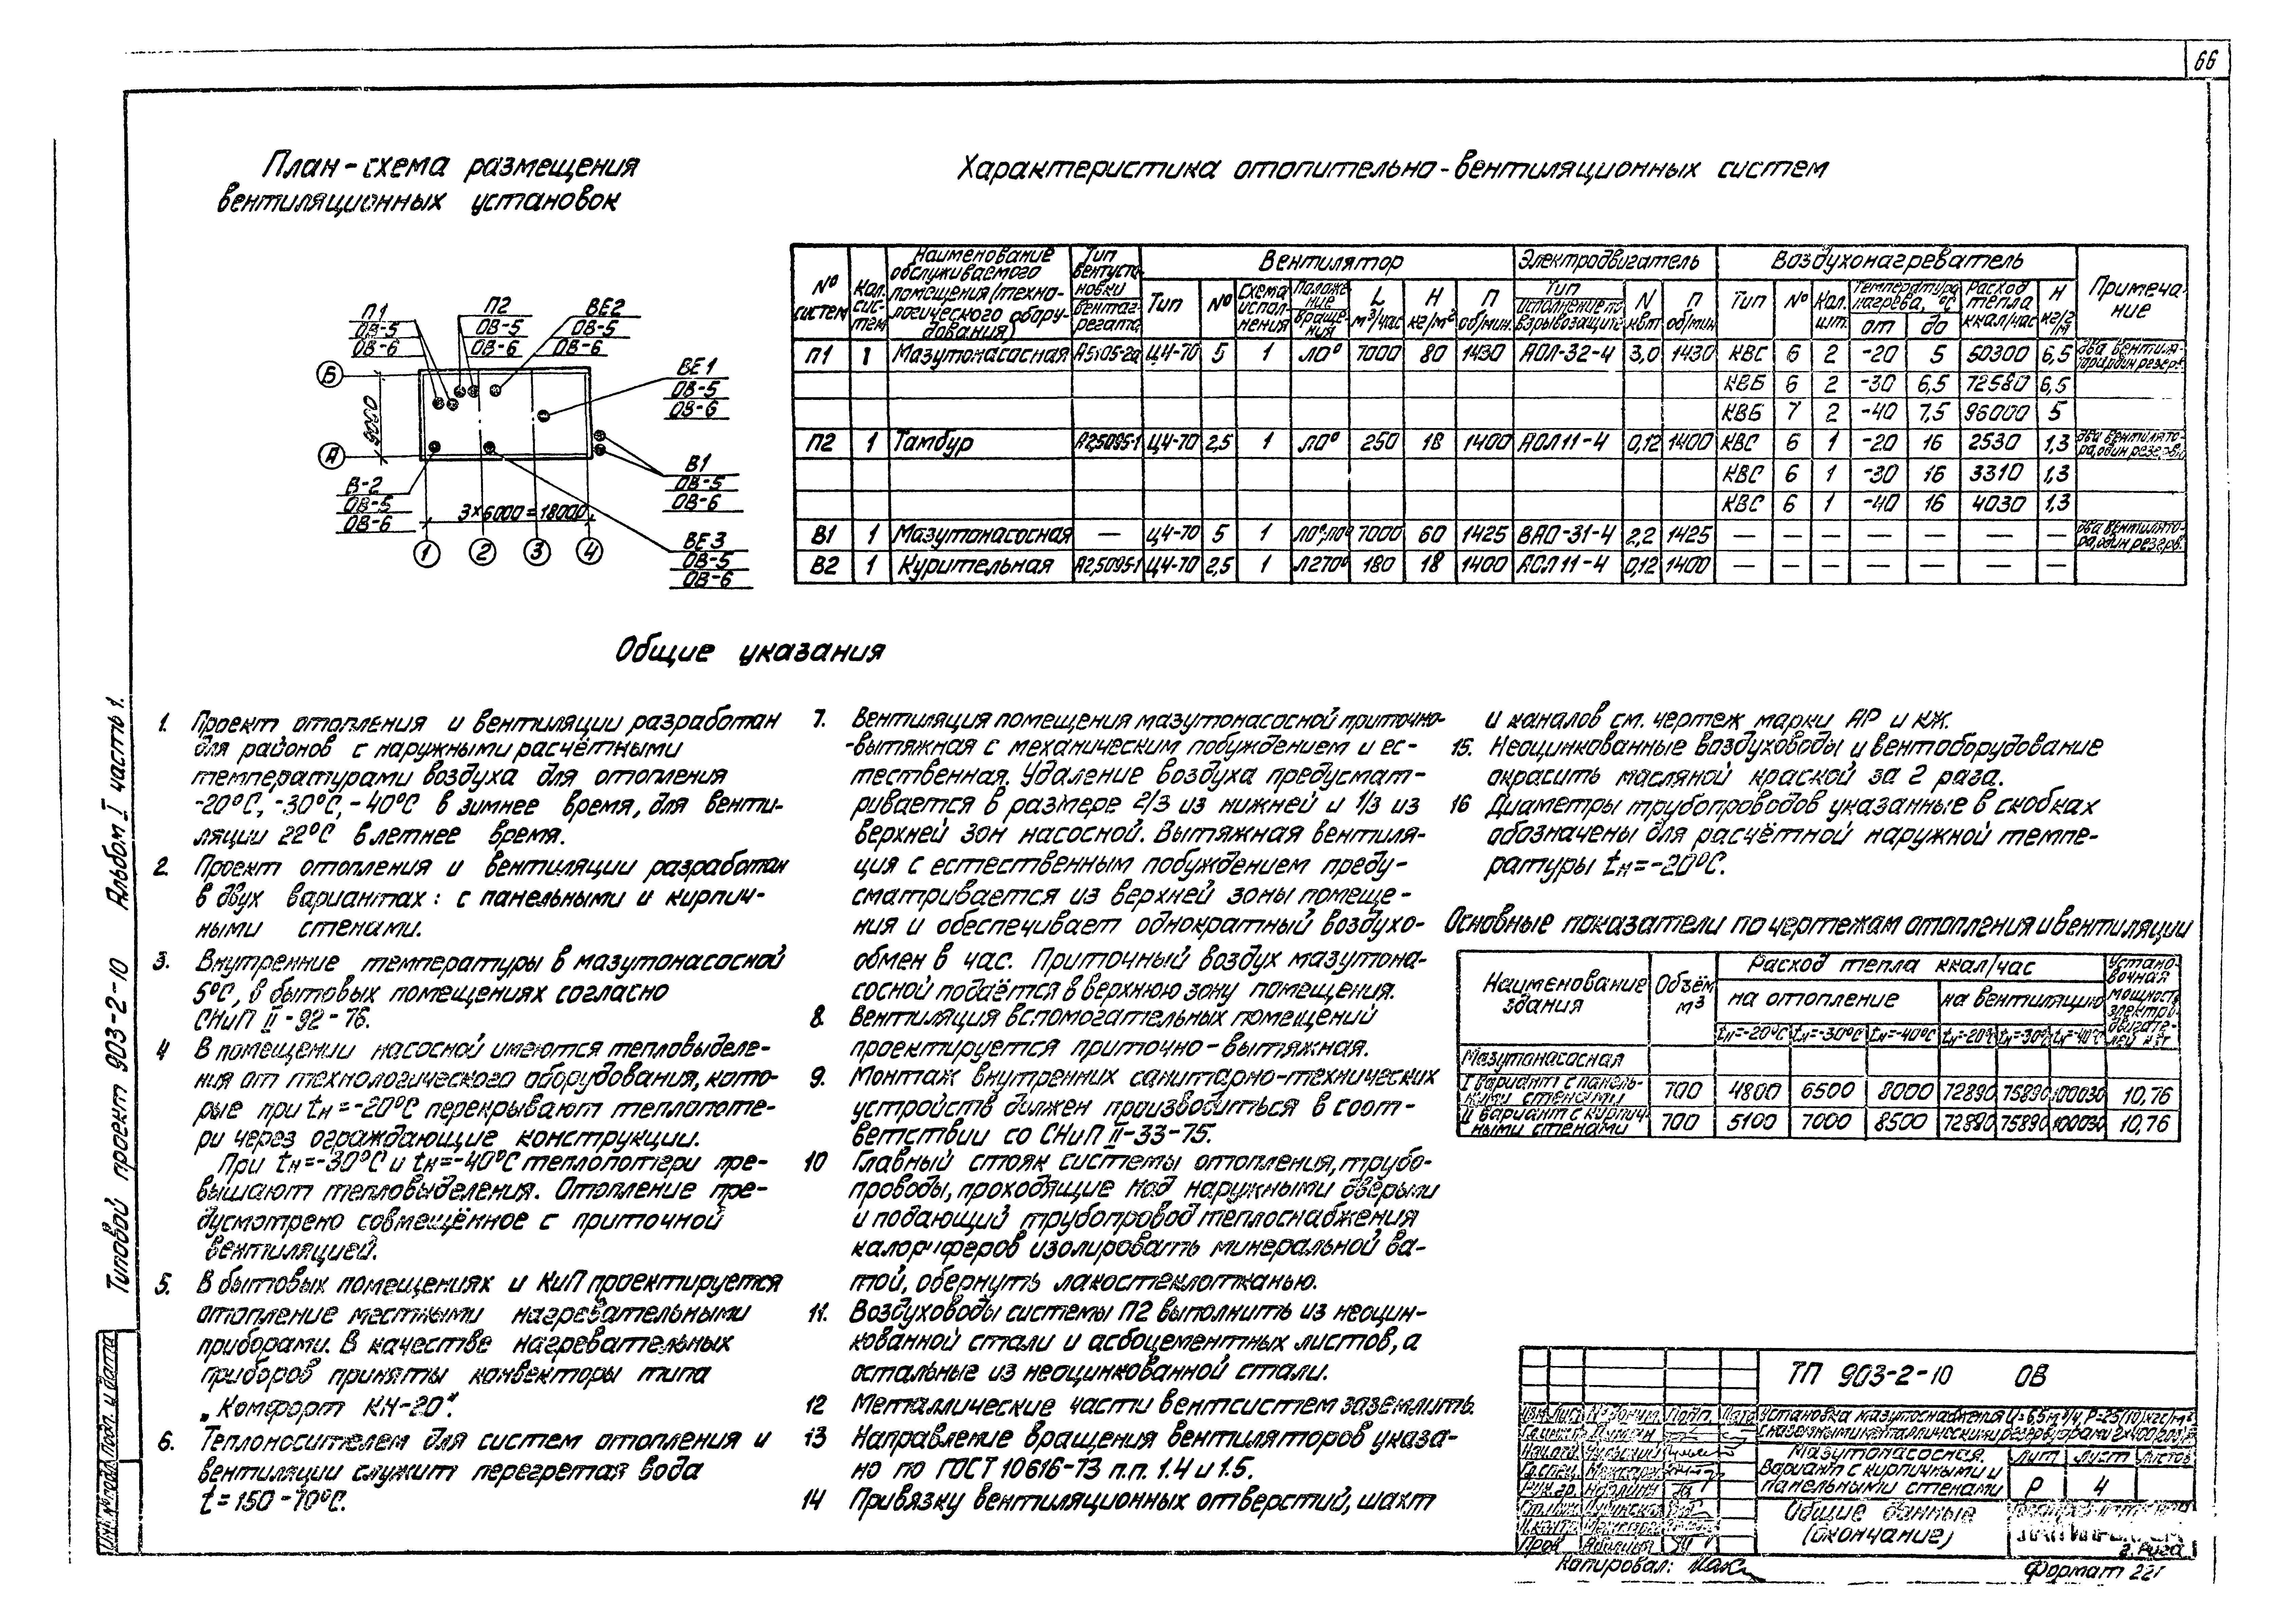 66
План-схема размещения
вентиляционных установок
П1
ОВ-5
ОВ-6
П2
ОВ-5
ОВ-6
ВЕ2
ОВ-5
ОВ-6
ВЕ1
ОВ-5
ОВ-6
Б
9000
А
В-2
ОВ-5
ОВ-6
В1
ОВ-5
ОВ-6
3×6000=18000
1 2 3 4
ВЕ3
ОВ-5
ОВ-6
Характеристика отопительно-вентиляционных систем
№ систем | Кол. сис-тем | Наименование обслуживаемого помещения (техно-логического обору-дования) | Тип вентуста-новки вентаг-регата | Вентилятор | Электродвигатель | Воздухонагреватель | Примеча-ние
Тип | № | Схема испол-нения | Положе-ние враще-ния | L м³/час | Н кг/м² | П об/мин. | Тип исполнение по взрывозащите | N квт | П об/мин | Тип | № | Кол. шт. | Температура нагрева, °С от до | Расход тепла ккал/час | Н кг/м²
П1 1 Мазутонасосная А5105-2а Ц4-70 5 1 Л0° 7000 80 1430 АОЛ-32-4 3,0 1430 КВС 6 2 -20 5 50300 6,5 два вентиля-тора, один резерв.
КВБ 6 2 -30 6,5 72580 6,5
КВБ 7 2 -40 7,5 96000 5
П2 1 Тамбур А2,5095-1 Ц4-70 2,5 1 Л0° 250 18 1400 АОЛ11-4 0,12 1400 КВС 6 1 -20 16 2530 1,3 два вентилято-ра, один резерв.
КВС 6 1 -30 16 3310 1,3
КВС 6 1 -40 16 4030 1,3
В1 1 Мазутонасосная — Ц4-70 5 1 Л0°;П0° 7000 60 1425 ВАО-31-4 2,2 1425 — — — — — — — два вентилято-ра, один резерв.
В2 1 Курительная А2,5095-1 Ц4-70 2,5 1 Л270° 180 18 1400 АОЛ11-4 0,12 1400 — — — — — — —
Общие указания
1. Проект отопления и вентиляции разработан
для районов с наружными расчётными
температурами воздуха для отопления
-20°С, -30°С, -40°С в зимнее время, для венти-
ляции 22°С в летнее время.
2. Проект отопления и вентиляции разработан
в двух вариантах: с панельными и кирпич-
ными стенами.
3. Внутренние температуры в мазутонасосной
5°С, в бытовых помещениях согласно
СНиП II-92-76.
4 В помещении насосной имеются тепловыделе-
ния от технологического оборудования, кото-
рые при tн=-20°С перекрывают теплопоте-
ри через ограждающие конструкции.
При tн=-30°С и tн=-40°С теплопотери пре-
вышают тепловыделения. Отопление пре-
дусмотрено совмещённое с приточной
вентиляцией.
5. В бытовых помещениях и КиП проектируется
отопление местными нагревательными
приборами. В качестве нагревательных
приборов приняты конвекторы типа
„Комфорт КН-20".
6. Теплоносителем для систем отопления и
вентиляции служит перегретая вода
t=150-70°С.
7. Вентиляция помещения мазутонасосной приточно-
-вытяжная с механическим побуждением и ес-
тественная. Удаление воздуха предусмат-
ривается в размере 2/3 из нижней и 1/3 из
верхней зон насосной. Вытяжная вентиля-
ция с естественным побуждением преду-
сматривается из верхней зоны помеще-
ния и обеспечивает однократный воздухо-
обмен в час. Приточный воздух мазутона-
сосной подаётся в верхнюю зону помещения.
8. Вентиляция вспомогательных помещений
проектируется приточно-вытяжная.
9. Монтаж внутренних санитарно-технических
устройств должен производиться в соот-
ветствии со СНиП II-33-75.
10 Главный стояк системы отопления, трубо-
проводы, проходящие над наружными дверьми
и подающий трубопровод теплоснабжения
калориферов изолировать минеральной ва-
той, обернуть лакостеклотканью.
11. Воздуховоды системы П2 выполнить из неоцин-
кованной стали и асбоцементных листов, а
остальные из неоцинкованной стали.
12 Металлические части вентсистем заземлить.
13 Направление вращения вентиляторов указа-
но по ГОСТ 10616-73 п.п. 1.4 и 1.5.
14 Привязку вентиляционных отверстий, шахт
и каналов см. чертеж марки АР и КЖ.
15. Неоцинкованные воздуховоды и вентоборудование
окрасить масляной краской за 2 раза.
16 Диаметры трубопроводов указанные в скобках
обозначены для расчётной наружной темпе-
ратуры tн=-20°С.
Основные показатели по чертежам отопления и вентиляции
Наименование здания | Объём м³ | Расход тепла ккал/час | Устано-вочная мощность электро-двигате-лей квт
на отопление | на вентиляцию
tн=-20°С tн=-30°С tн=-40°С tн=-20°С tн=-30°С tн=-40°С
Мазутонасосная
I вариант с панель-ными стенами 700 4800 6500 8000 72890 75890 100030 10,76
II вариант с кирпич-ными стенами 700 5100 7000 8500 72890 75890 100030 10,76
Типовой проект 903-2-10 Альбом I часть 1.
Инв. № подл. Подп. и дата
ТП 903-2-10 ОВ
Изм. Лист № докум. Подп. Дата
Нач.отд.
Гл.спец.
Рук.гр.
Ст.инж.
Н.контр.
Пров.
Установка мазутоснабжения
Мазутонасосная.
Вариант с кирпичными и
панельными стенами
Лит Лист Листов
Р 4
Общие данные
(окончание)
г. Рига
Копировал:
Формат 22г